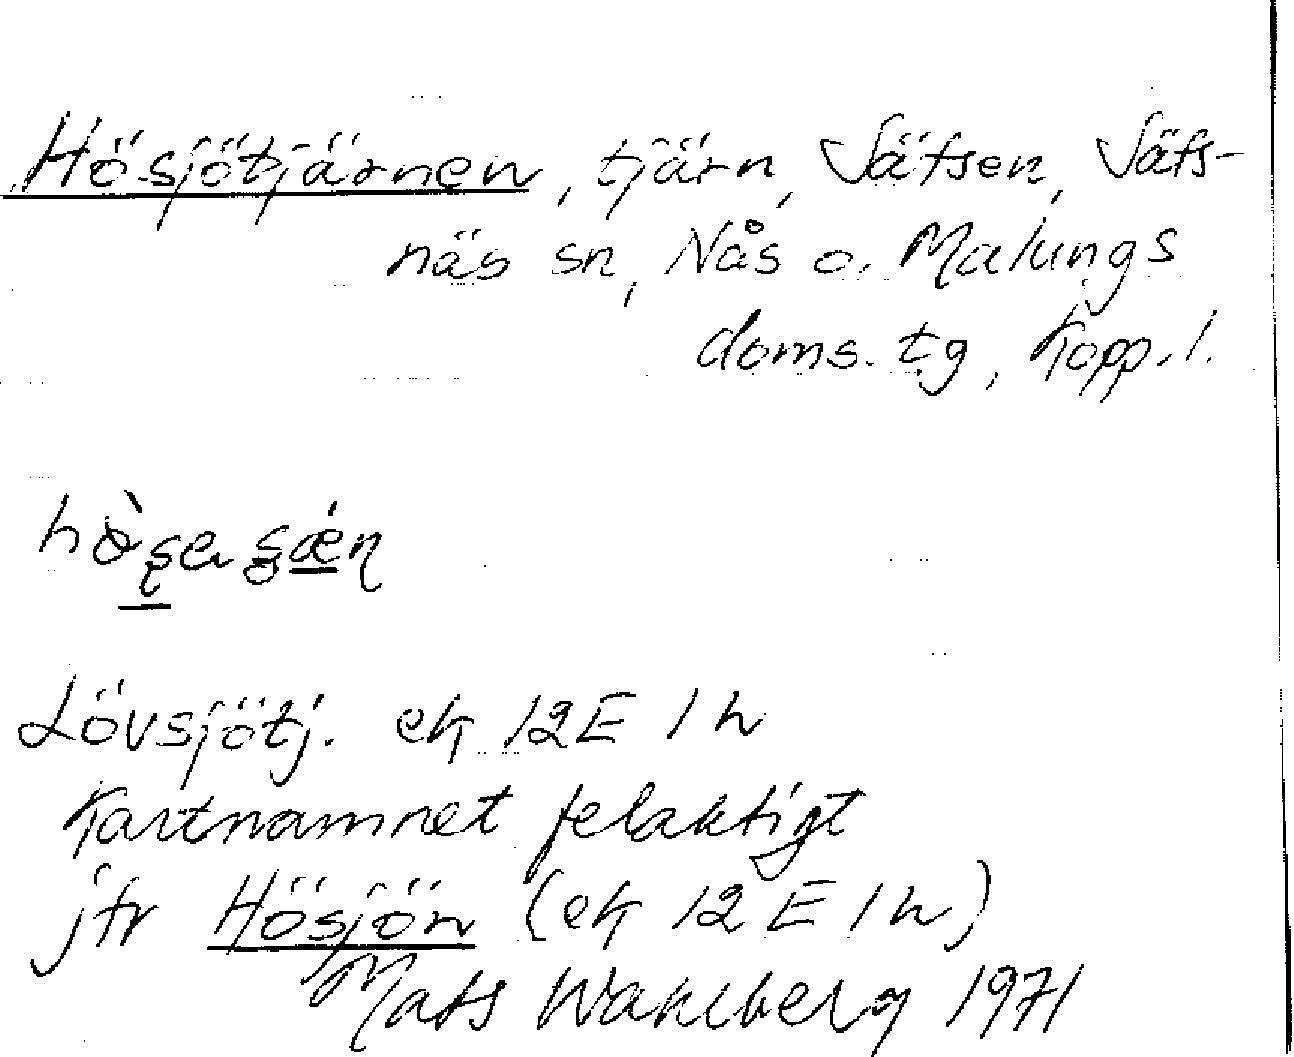 Hösjötjärnen, tjärn, Säfsen, Säfs-
näs sn, Nås o. Malungs
doms. tg, Kopp. l.
Lövsjötj. ek 12E 1h
Kartnamnet felaktigt
jfr Hösjön (ek 12E 1h)
Mats Wahlberg 1971